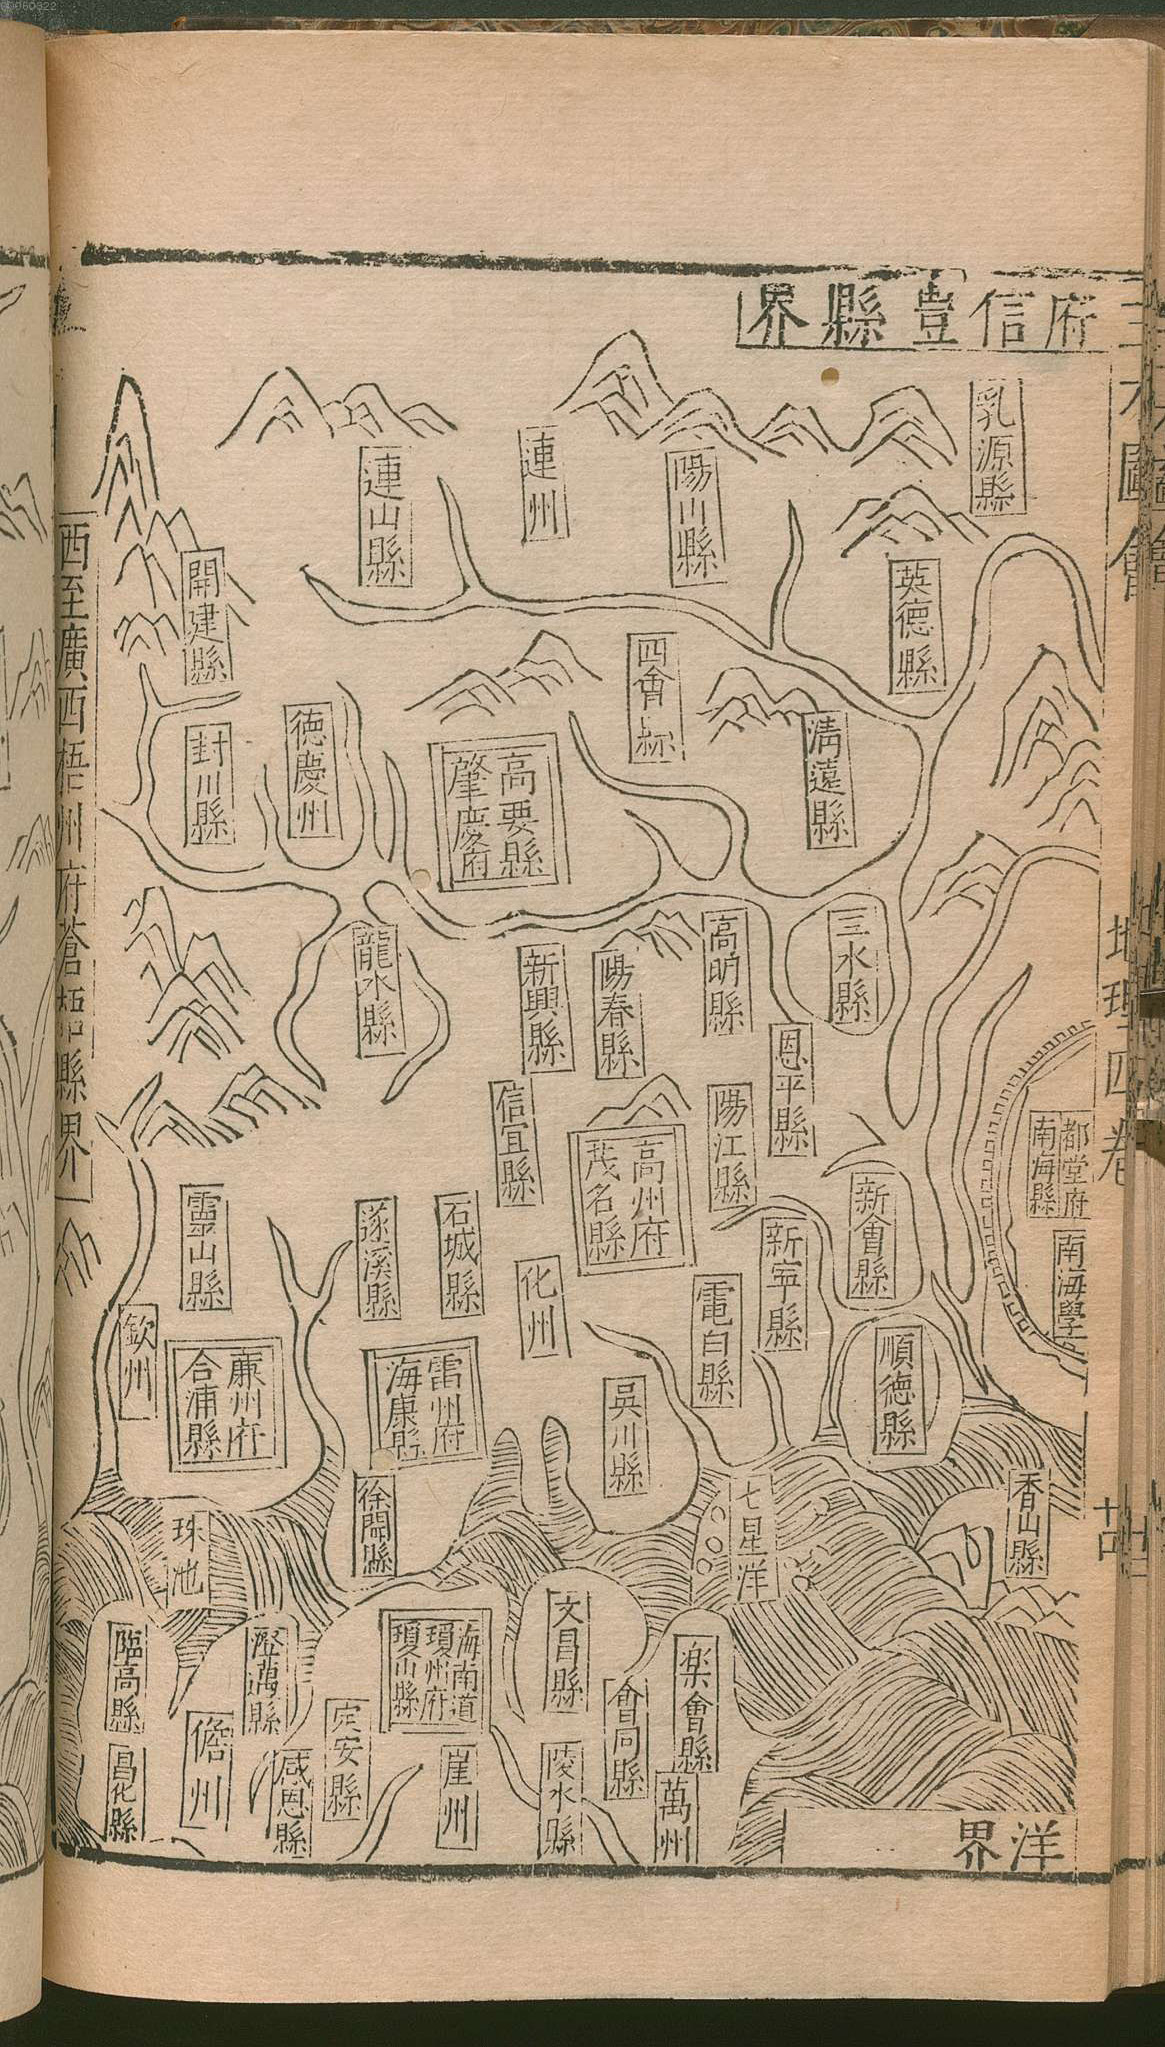 府信豊縣界
乳源縣
陽山縣
連州
連山縣
英德縣
開建縣
西至廣西梧州府蒼梧縣界
四會縣
清遠縣
德慶州
封川縣
高要縣
肇慶府
三水縣
高明縣
陽春縣
新興縣
瀧水縣
恩平縣
陽江縣
信宜縣
高州府
茂名縣
都堂府
南海縣
南海學
新會縣
新寧縣
電白縣
化州
石城縣
遂溪縣
靈山縣
欽州
順德縣
吳川縣
雷州府
海康縣
廉州府
合浦縣
香山縣
七星洋
徐聞縣
珠池
文昌縣
樂會縣
會同縣
海南道
瓊州府
瓊山縣
澄邁縣
臨高縣
定安縣
儋州
昌化縣
感恩縣
崖州
陵水縣
萬州
洋界
地理四卷